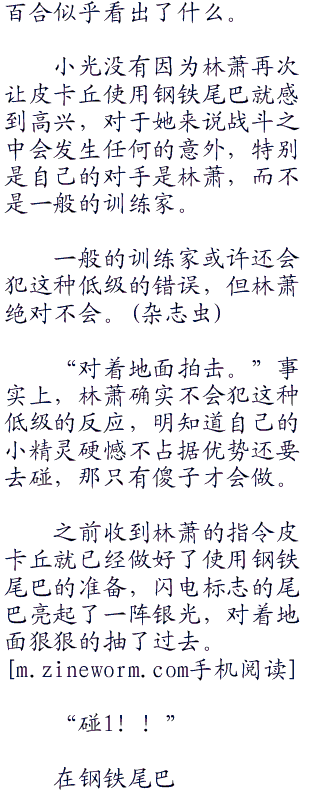 百合似乎看出了什么。
小光没有因为林萧再次
让皮卡丘使用钢铁尾巴就感
到高兴，对于她来说战斗之
中会发生任何的意外，特别
是自己的对手是林萧，而不
是一般的训练家。
一般的训练家或许还会
犯这种低级的错误，但林萧
绝对不会。(杂志虫)
“对着地面拍击。”事
实上，林萧确实不会犯这种
低级的反应，明知道自己的
小精灵硬憾不占据优势还要
去碰，那只有傻子才会做。
之前收到林萧的指令皮
卡丘就已经做好了使用钢铁
尾巴的准备，闪电标志的尾
巴亮起了一阵银光，对着地
面狠狠的抽了过去。
[m.zineworm.com手机阅读]
“碰1！！”
在钢铁尾巴